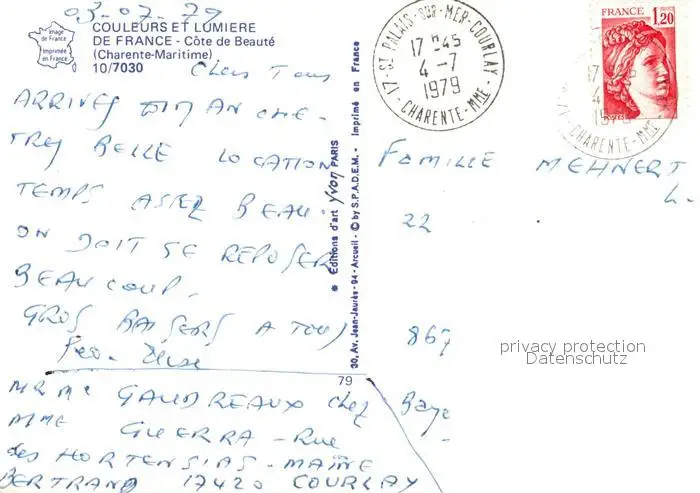 03-07-79
COULEURS ET LUMIERE
DE FRANCE - Côte de Beauté
(Charente-Maritime)
10/7030
Image de France
Imprimée en France
Chers Tous
ARRIVES DIMANCHE -
TRES BELLE LOCATION
TEMPS ASSEZ BEAU.
ON DOIT SE REPOSER
BEAUCOUP.
GROS BAISERS A TOUS
MR Me GAUDREAUX chez
MME GUERRA - Rue
des HORTENSIAS - MAINE
BERTRAND 17420 COURLAY
79
* Editions d'art yvon PARIS
30, Av. Jean-Jaurès - 94 - Arcueil - © by S.P.A.D.E.M. - Imprimé en France
17 - ST PALAIS-SUR-MER-COURLAY
17 H 45
4 - 7
1979
CHARENTE-MME
FRANCE 1,20
17
4
1979
CHARENTE-MME
FAMILLE MEHNERT
L.
22
867
Baye
privacy protection
Datenschutz